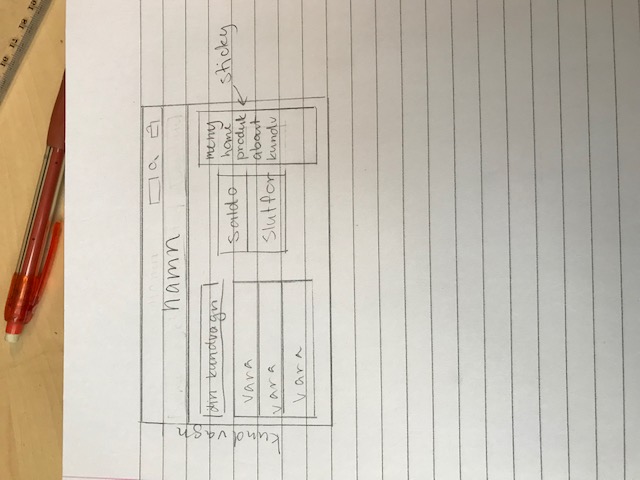 kundvagn
namn
din kundvagn
vara
vara
vara
saldo
slutför
meny
home
produk
about
kundv
sticky